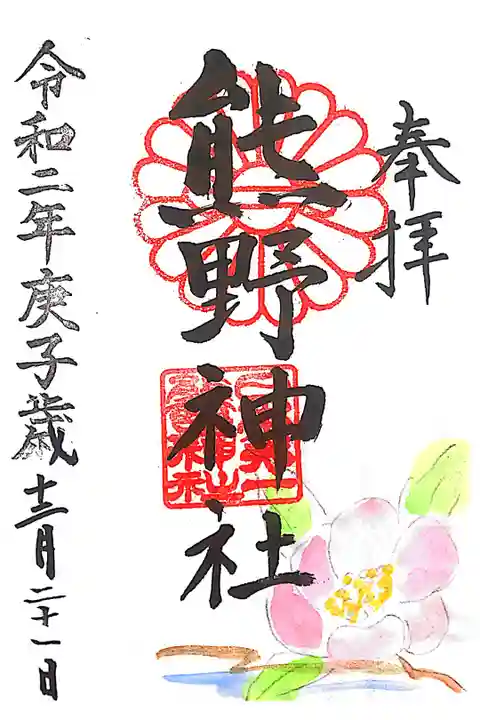 奉拝
熊野神社
令和二年庚子歳十二月二十一日